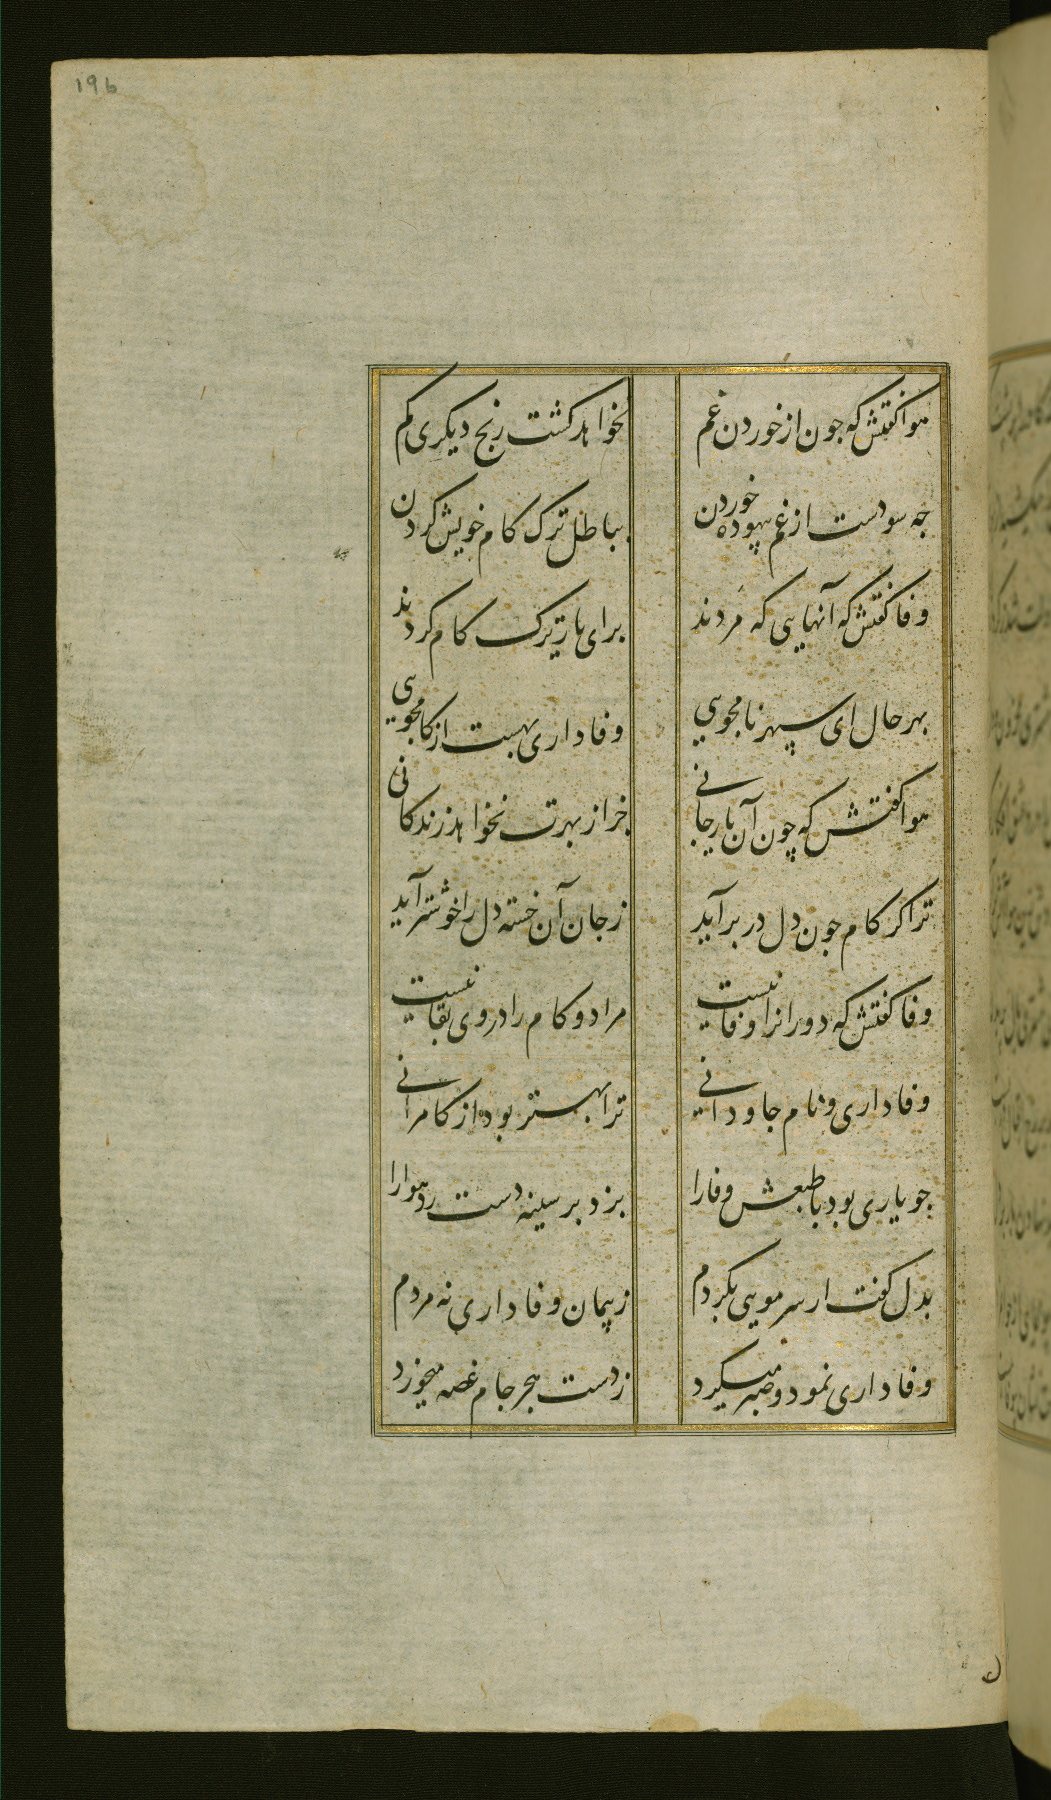 196
هوا کفتش که جون از خوردن غم نخواهد کشت رنج دیکری کم
جه سودست از غم بیهوده خوردن بباطل ترک کام خویش کردن
وفا کفتش که آنهایی که مردند برای یار ترک کام کردند
بهر حال ای سپهر نامجویی وفاداری بهست از کامجویی
هوا کفتش که چون آن یار جانی بجز از بهرت نخواهد زندکانی
ترا کر کام جون دل در بر آید ز جان آن خسته دل را خوشتر آید
وفا کفتش که دورانرا وفا نیست مراد و کام را در وی بقا نیست
وفاداری و نام جاودانی ترا بهتر بود از کامرانی
جو یاری بود با طبعش وفا را بزد بر سینه دست رد هوا را
بدل کفت ار سر مویی بکردم ز پیمان وفاداری نه مردم
وفاداری نمود و صبر میکرد ز دست هجر جام غصه میخورد